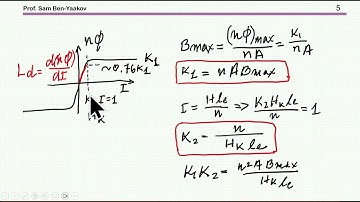 Prof. Sam Ben-Yaakov
5
nϕ
Ld = d(nϕ)/dI
K1
~0.76K1
I
I=1
Bmax = (nϕ)max/nA = K1/nA
K1 = nABmax
I = Hle/n => K2Hkle/n = 1
K2 = n/Hkle
K1K2 = n²ABmax/Hkle